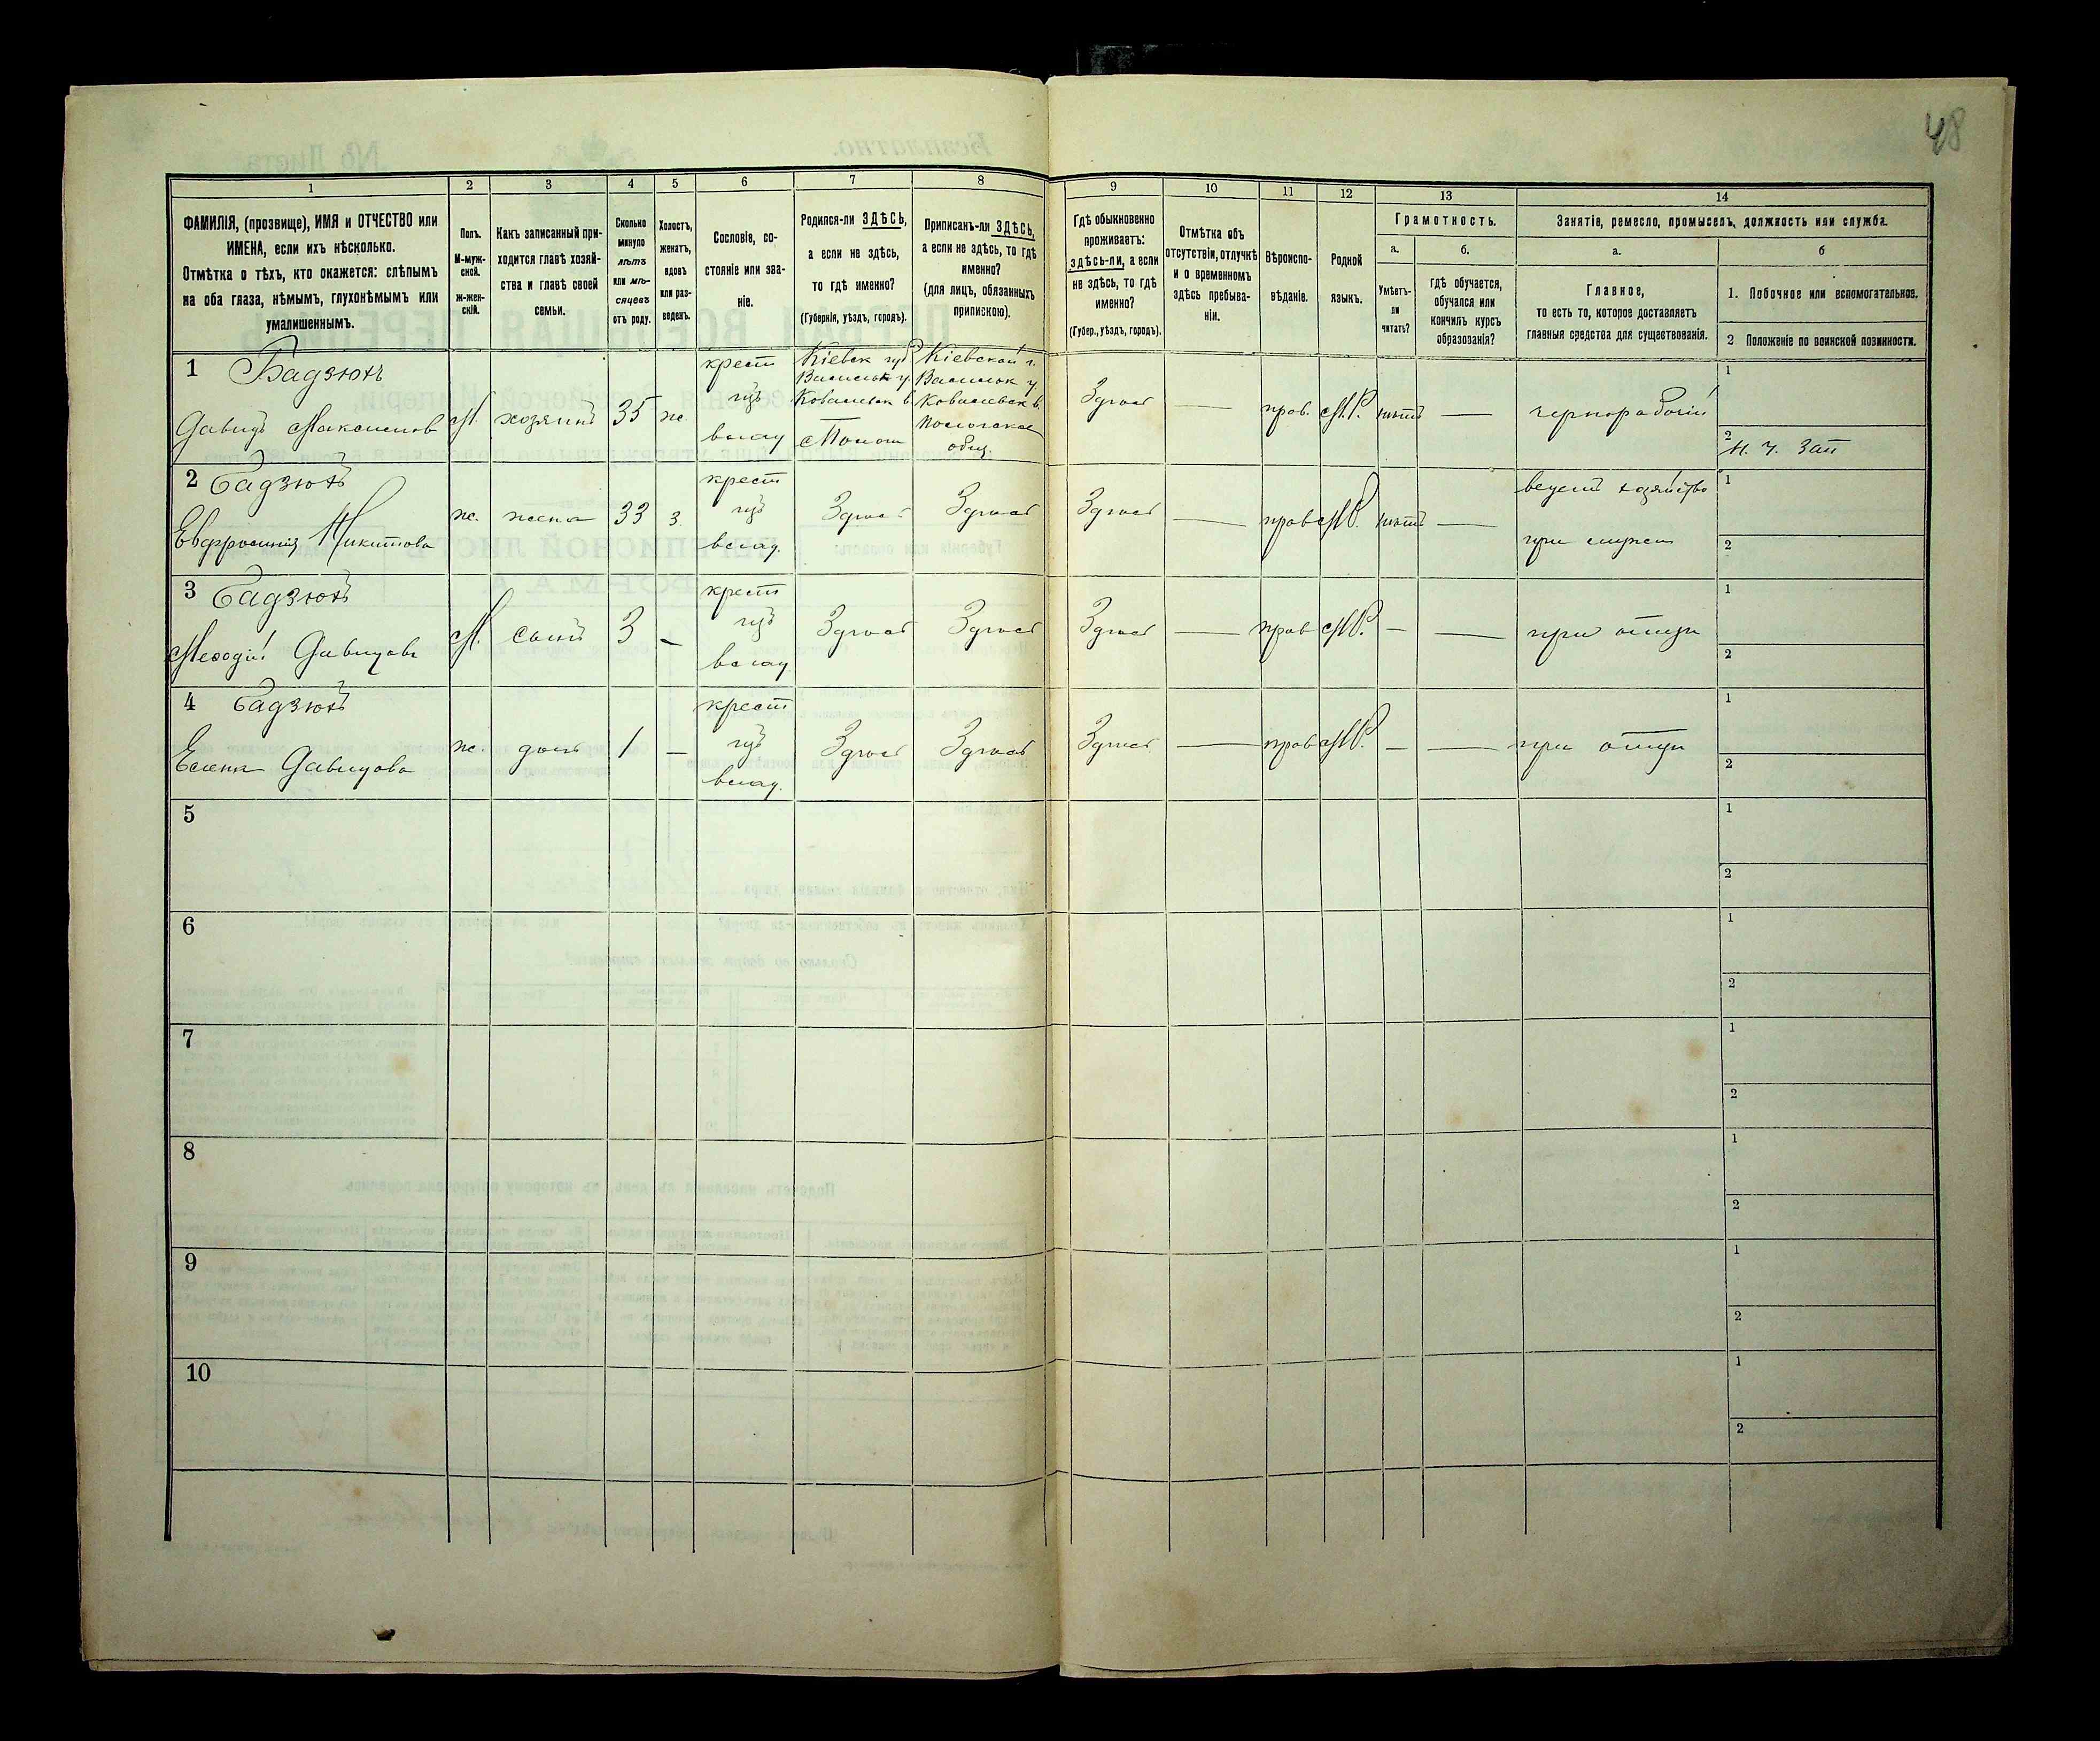 48
1 2 3 4 5 6 7 8 9 10 11 12 13 14
ФАМИЛІЯ, (прозвище), ИМЯ и ОТЧЕСТВО или
ИМЕНА, если ихъ нѣсколько.
Отмѣтка о тѣхъ, кто окажется: слѣпымъ
на оба глаза, нѣмымъ, глухонѣмымъ или
умалишеннымъ.
Полъ.
М-муж-
ской.
ж-жен-
скій.
Какъ записанный при-
ходится главѣ хозяй-
ства и главѣ своей
семьи.
Сколько
минуло
лѣтъ
или мѣ-
сяцевъ
отъ роду.
Холостъ,
женатъ,
вдовъ
или раз-
веденъ.
Сословіе, со-
стояніе или зва-
ніе.
Родился-ли ЗДѢСЬ,
а если не здѣсь,
то гдѣ именно?
(Губернія, уѣздъ, городъ).
Приписанъ-ли ЗДѢСЬ,
а если не здѣсь, то гдѣ
именно?
(для лицъ, обязанныхъ
припискою).
Гдѣ обыкновенно
проживаетъ:
здѣсь-ли, а если
не здѣсь, то гдѣ
именно?
(Губер., уѣздъ, городъ).
Отмѣтка объ
отсутствіи, отлучкѣ
и о временномъ
здѣсь пребыва-
ніи.
Вѣроиспо-
вѣданіе.
Родной
языкъ.
Грамотность.
а.
Умѣетъ-
ли
читать?
б.
гдѣ обучается,
обучался или
кончилъ курсъ
образованія?
Занятіе, ремесло, промыселъ, должность или служба.
а.
Главное,
то есть то, которое доставляетъ
главныя средства для существованія.
б
1. Побочное или вспомогательное.
2 Положеніе по воинской повинности.
1 Бадзюхъ
Давидъ Максимов
М. хозяинъ 35 ж.
крест
изъ
влад
Кіевск губ
Васильк у.
Ковалевск в.
Кіевской г.
Васильк у.
Ковалевск в.
общ.
Здѣсь — прав. М.Р. нѣтъ — чернорабочій
1
2 Н. Ч. Зап
2 Бадзюхъ
Евфросинія Никитова
ж. жена 33 з.
крест
изъ
влад.
Здѣсь Здѣсь Здѣсь — прав М.Р. нѣтъ —
ведетъ хозяйство
при мужѣ
1
2
3 Бадзюхъ
Мефодій Давидовъ
М. сынъ 3 —
крест
изъ
влад
Здѣсь Здѣсь Здѣсь — прав М.Р. — — при отцѣ
1
2
4 Бадзюхъ
Елена Давидова
ж. дочь 1 —
крест
изъ
влад.
Здѣсь Здѣсь Здѣсь — прав М.Р. — — при отцѣ
1
2
5
1
2
6
1
2
7
1
2
8
1
2
9
1
2
10
1
2